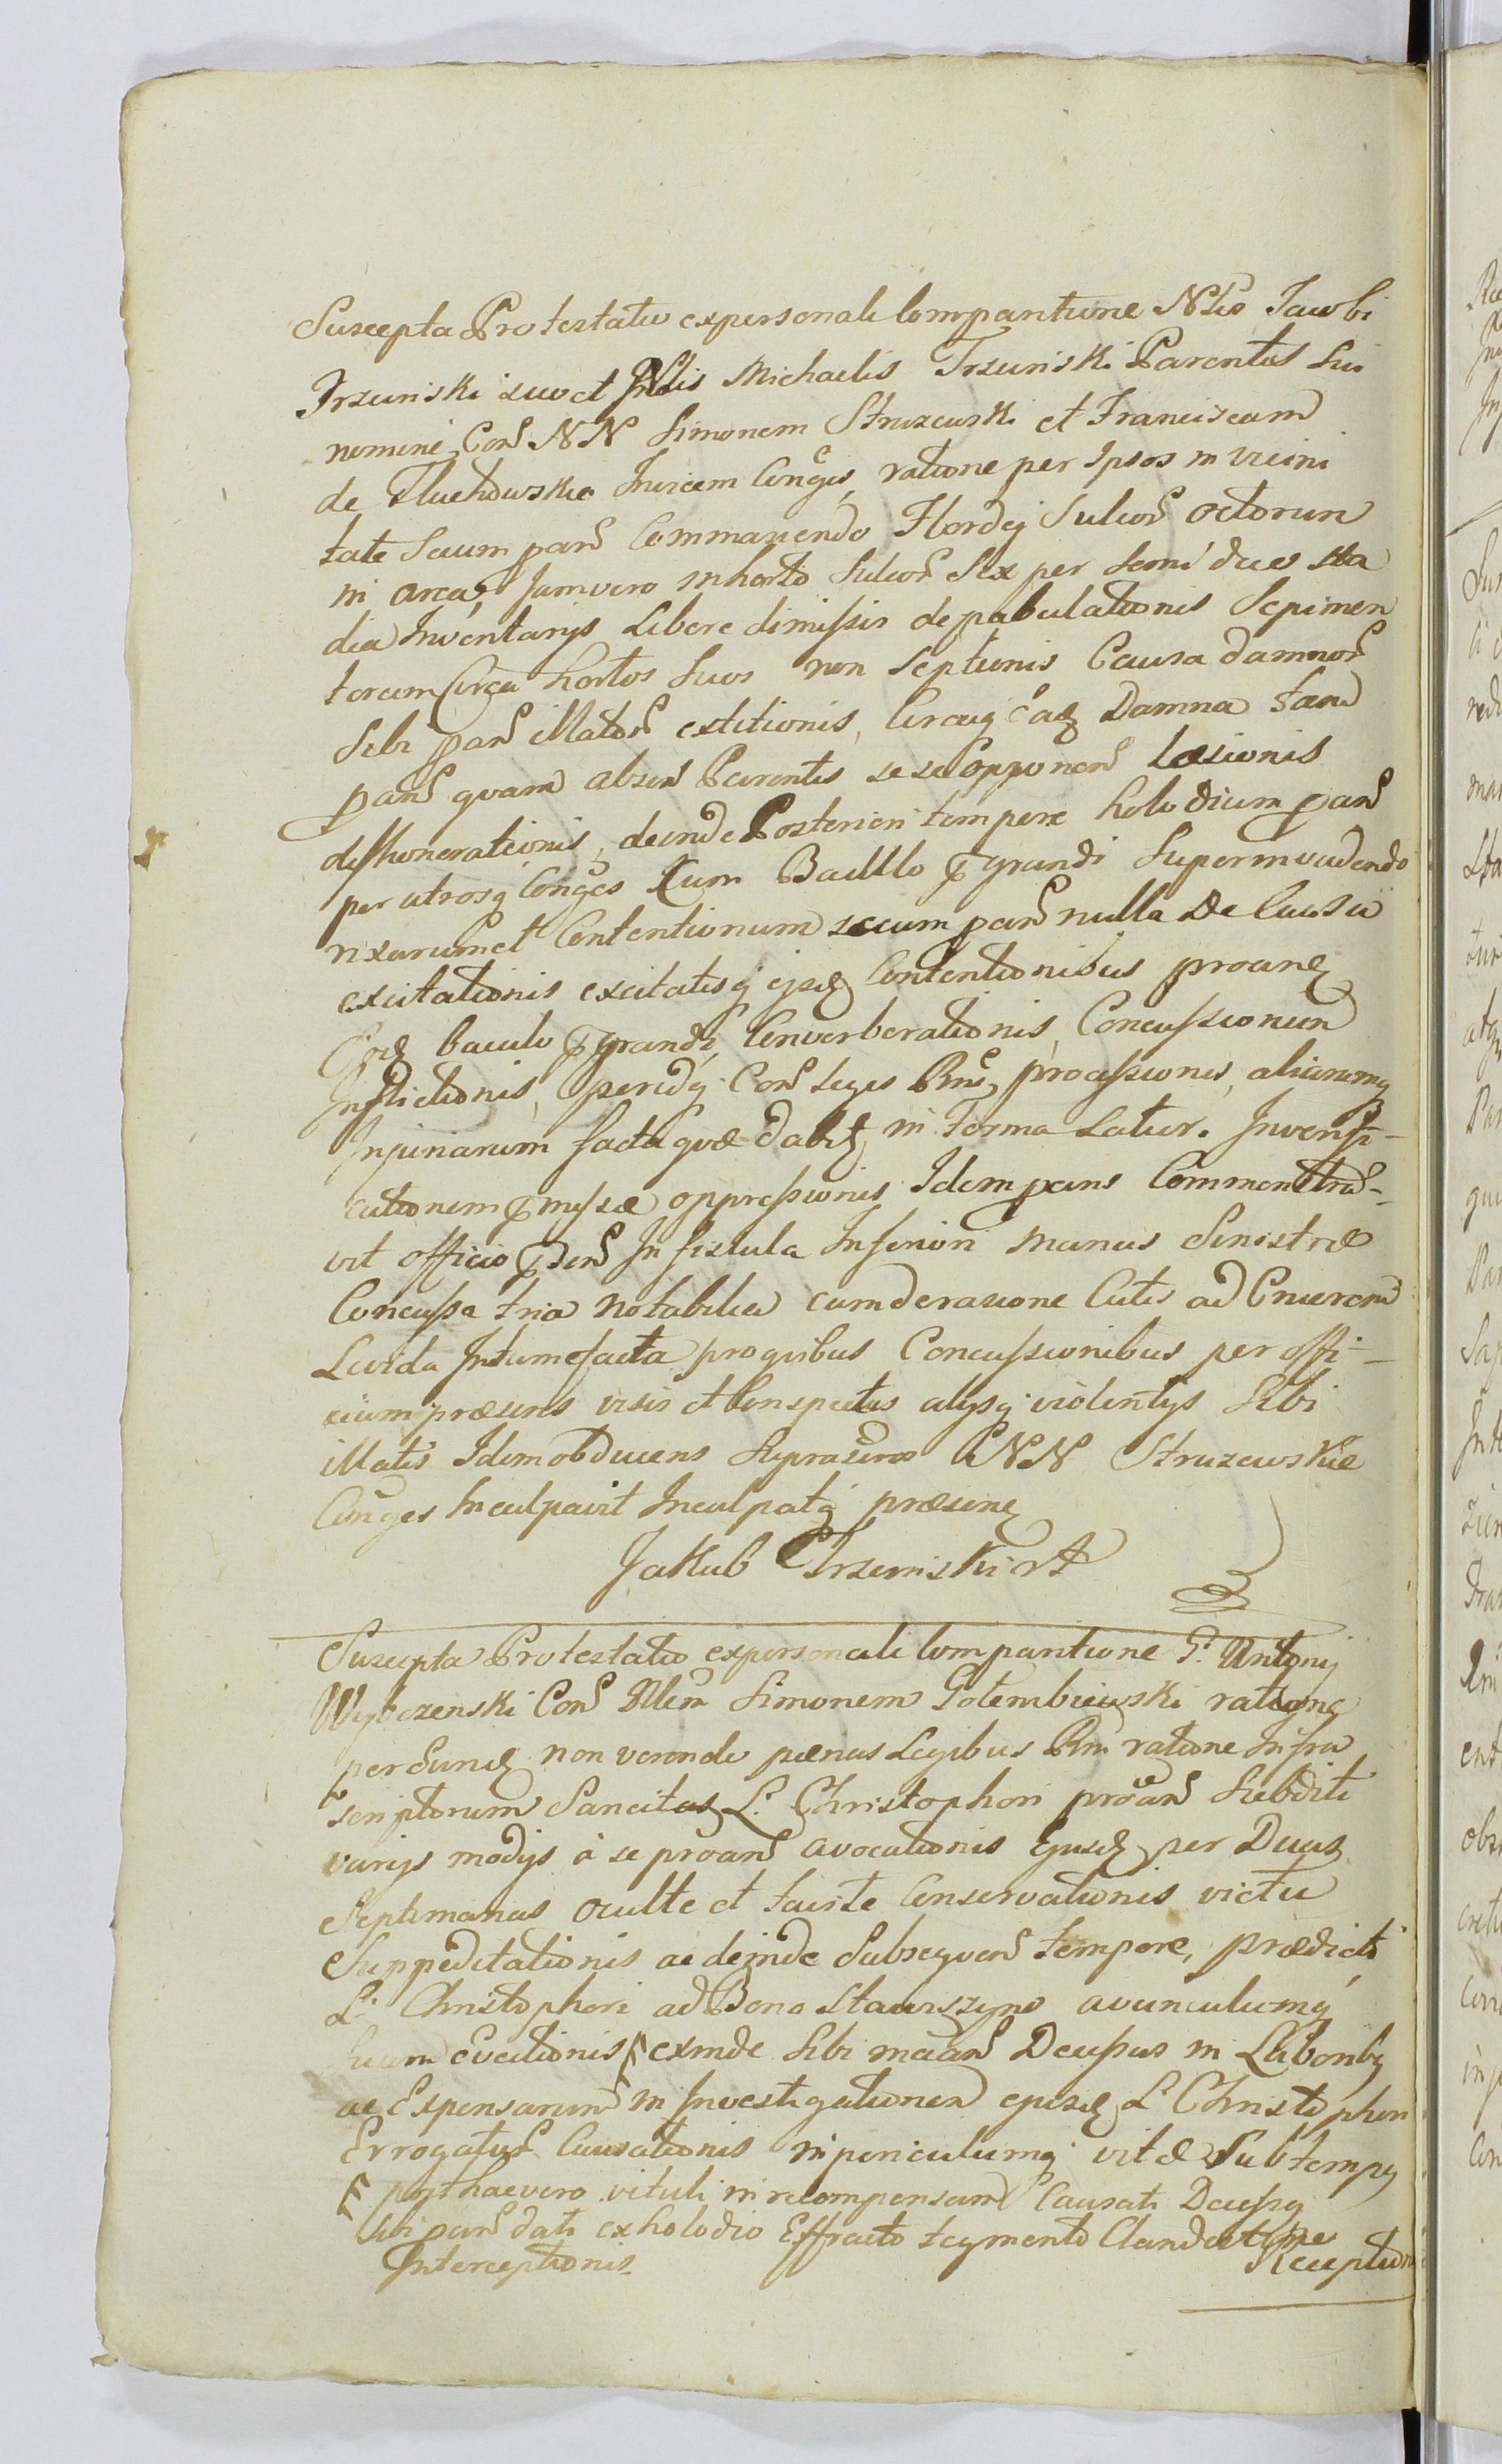 Suscepta Protestatio ex personali Comparitione Nblis Jacobi
Trzcinski suo et Nblis Michaelis Trzcinski Parentis Sui
nomine Con NN Simonem Struzewski et Franciscam
de Tluchowskie Invicem Conges, ratione per Ipsos in vicini
tate Secum paris Commanendo Hordej Sulcor octorum
in area, Jam vero in horto Sulcor Sex per Semi duo sta
dia Inventarijs Libere dimissis depabulationis Sepimen
torum Circa hortos Suos non Septionis Causa damnor
Sibi paris illator extitionis, Circaq eaq Damna tam
paris quam absen Parentis se se opponen Læsionis
dishonerationis, deinde Posteriori tempore holodium paris
per utrosq Conges Cum Bacullo grandi Supermeuendo
rixarum et Contentionum secum paris nulla De Causa
excitationis excitatisq ejsd Contentionibus proane
Eod baculo grandi, Converberationis, Concussionum
Inflictionis, peridq Con Leges Rni processionis, aliarumq
Injuriarum facta quæ dabit in Forma Latior. In verifi-
cationem pmissæ oppressionis Idem parens Commonstra-
vit officio pnti In fistula Inferiori manus Sinistræ
Concussa tria notabilia cum derasione Cutis ad Cruorem
Livida Intumefacta pro quibus Concussionibus per offi-
cium præsens visis et Conspectis alysq violentijs Sibi
illatis Idem obducens Suprascros NN Struzewskie
Conges Inculpavit Inculpatq præsene
Jakub Trzcinski
Suscepta Protestatio ex personali Comparitione G. Antonij
Wybczenski Con Nblem Simonem Gołembiewski ratione
per Eund non verendo pænas Legibus Rni ratione Infra
scriptorum Sancitas L. Christophori proan Subditi
varijs modijs à se proan avocationis Ejusd per Duas
Septimanas occulte et tacite Conservationis victu
Suppeditationis ac deinde Subsequen tempore, prædicti
L. Christophori ad Bona Stawiszyno avunculumq
Suum Evectionis exinde Sibi maan Decessus in Laboribg
ac Expensarum in Investigationem ejusd L. Christophori
Errogatus Causationis in periculumq vitæ Sub tempg
post hac vero vituli in recompensam Causati Decessg
Sibi paris dati ex holodio Effracto tegmento Clandestine
Interceptionis Reception